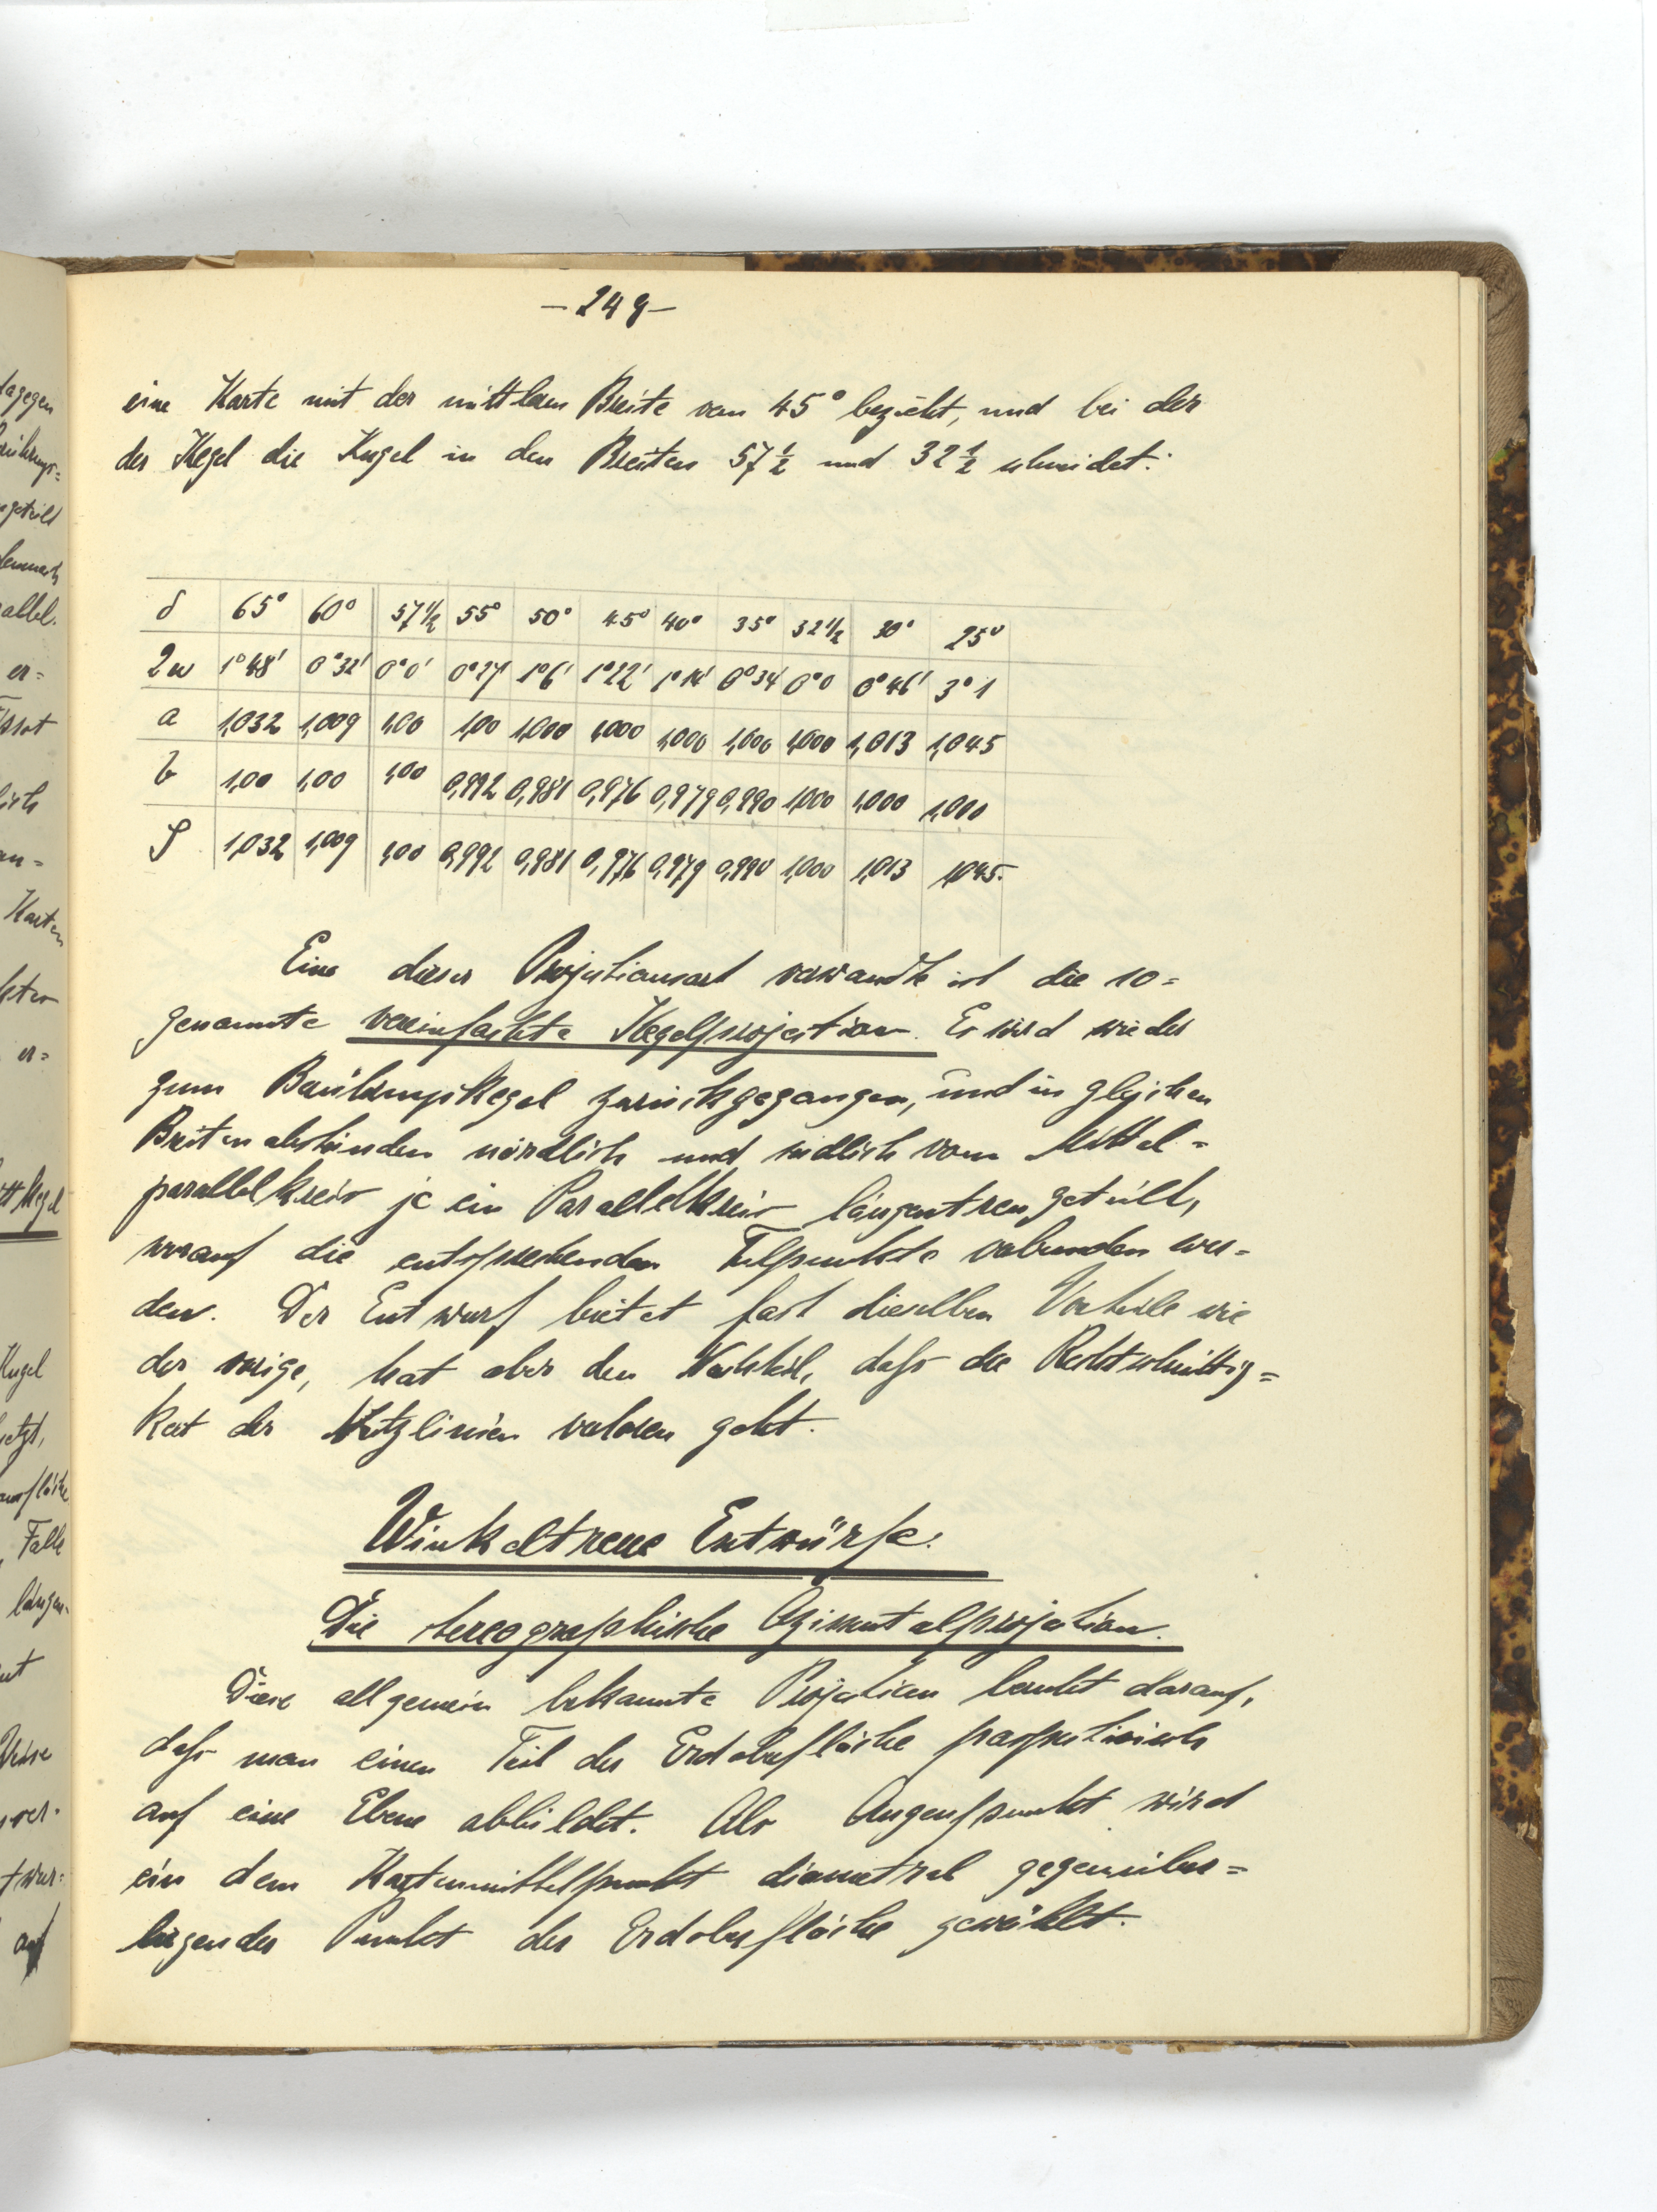 — 249 —
eine Karte mit der mittleren Breite von 45° bezieht, und bei der
der Kegel die Kugel in den Breiten 57 1/2 und 32 1/2 schneidet:
δ 65° 60° 57 1/2 55° 50° 45° 40° 35° 32 1/2 30° 25°
2w 1°48' 0°32' 0°0' 0°27' 1°6' 1°22' 1°14' 0°34' 0°0 0°46' 3°1
a 1,032 1,009 1,00 1,00 1,000 1,000 1,000 1,000 1,000 1,013 1,045
b 1,00 1,00 1,00 0,992 0,981 0,976 0,979 0,990 1,000 1,000 1,000
S 1,032 1,009 1,00 0,992 0,981 0,976 0,979 0,990 1,000 1,013 1,045.
Eine dieser Projektionsart verwandte ist die so=
genannte vereinfachte Kegelprojection. Es wird wieder
zum Berührungskegel zurückgegangen, und in gleichen
Breitenabständen nördlich und südlich vom Mittel=
parallelkreis je ein Parallelkreis längentreu geteilt,
worauf die entsprechenden Teilpunkte verbunden wer=
den. Der Entwurf bietet fast dieselben Vorteile wie
der vorige, hat aber den Nachteil, daß die Rechtschnittig=
keit der Netzlinien verloren geht.
Winkeltreue Entwürfe.
Die stereographische Azimutalprojektion.
Diese allgemein bekannte Projektion beruht darauf,
daß man einen Teil der Erdoberfläche perspectivisch
auf eine Ebene abbildet. Als Augenpunkt wird
ein dem Kartenmittelpunkt diametral gegenüber=
liegender Punkt der Erdoberfläche gewählt.
dagegen
er=
Karten
er=
Kugel
Falle
auf